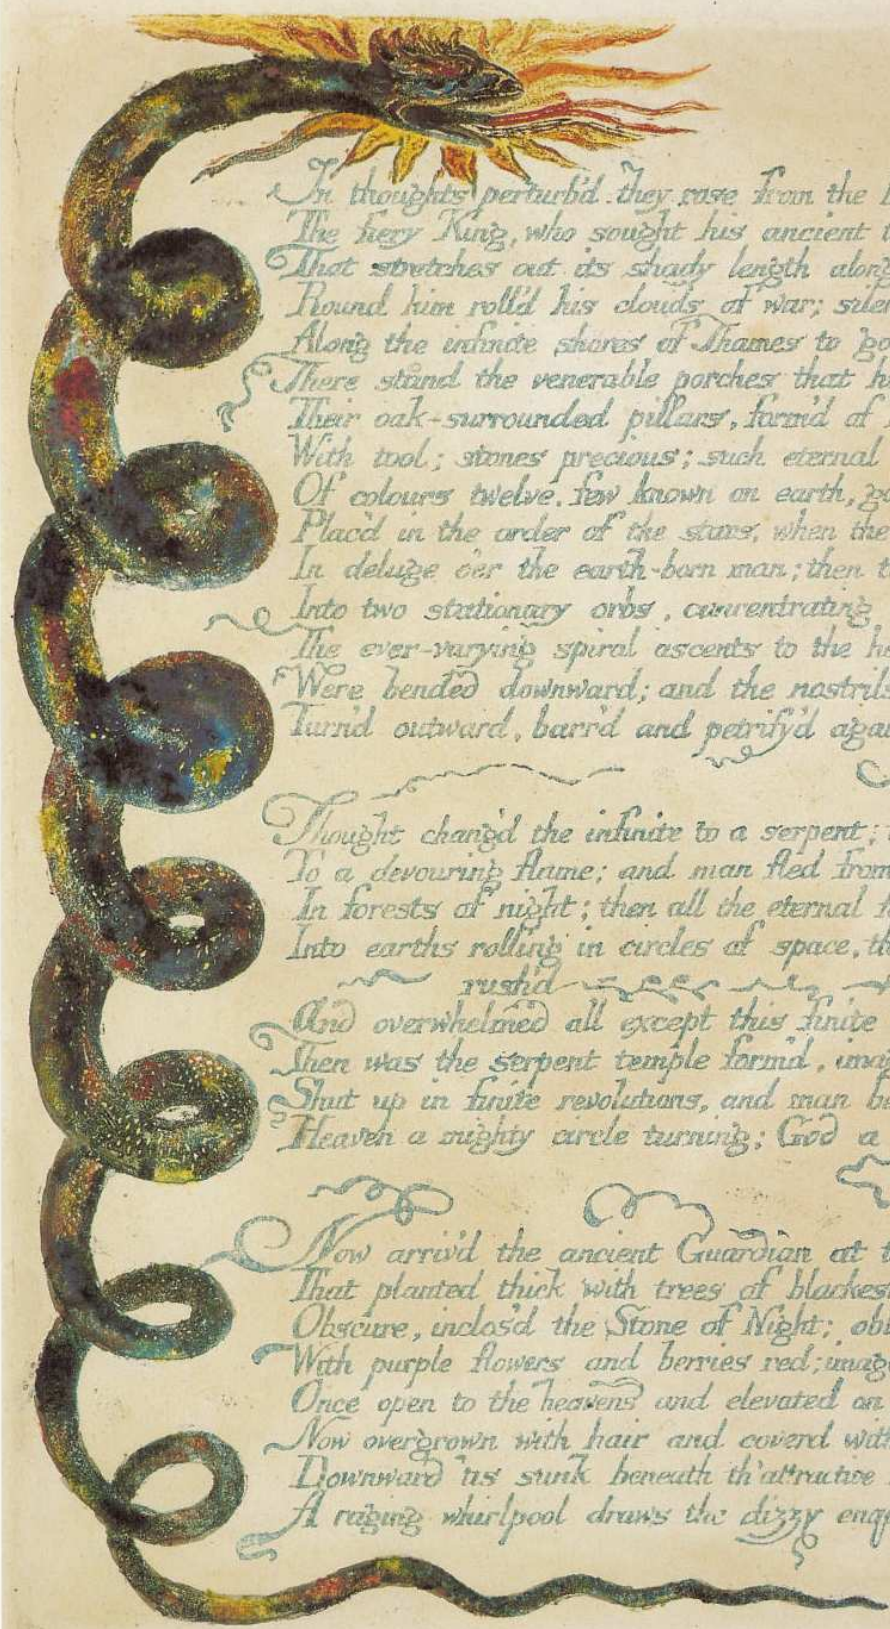 In thoughts perturb'd they rose from the
The fiery King, who sought his ancient
That stretches out its shady length along
Round him roll'd his clouds of war; silen
Along the infinite shores of Thames to go
There stand the venerable porches that h
Their oak-surrounded pillars, form'd of
With tool; stones precious; such eternal
Of colours twelve, few known on earth, g
Plac'd in the order of the stars, when the
In deluge o'er the earth-born man; then t
Into two stationary orbs, concentrating
The ever-varying spiral ascents to the he
Were bended downward; and the nostrils
Turn'd outward, barr'd and petrify'd agai
Thought chang'd the infinite to a serpent;
To a devouring flame; and man fled from
In forests of night; then all the eternal f
Into earths rolling in circles of space, th
rush'd
And overwhelmed all except this finite
Then was the serpent temple form'd, imag
Shut up in finite revolutions, and man be
Heaven a mighty circle turning; God a
Now arriv'd the ancient Guardian at t
That planted thick with trees of blackest
Obscure, inclos'd the Stone of Night; obl
With purple flowers and berries red; image
Once open to the heavens and elevated on
Now overgrown with hair and coverd with
Downward 'tis sunk beneath th' attractive
A raging whirlpool draws the dizzy enq